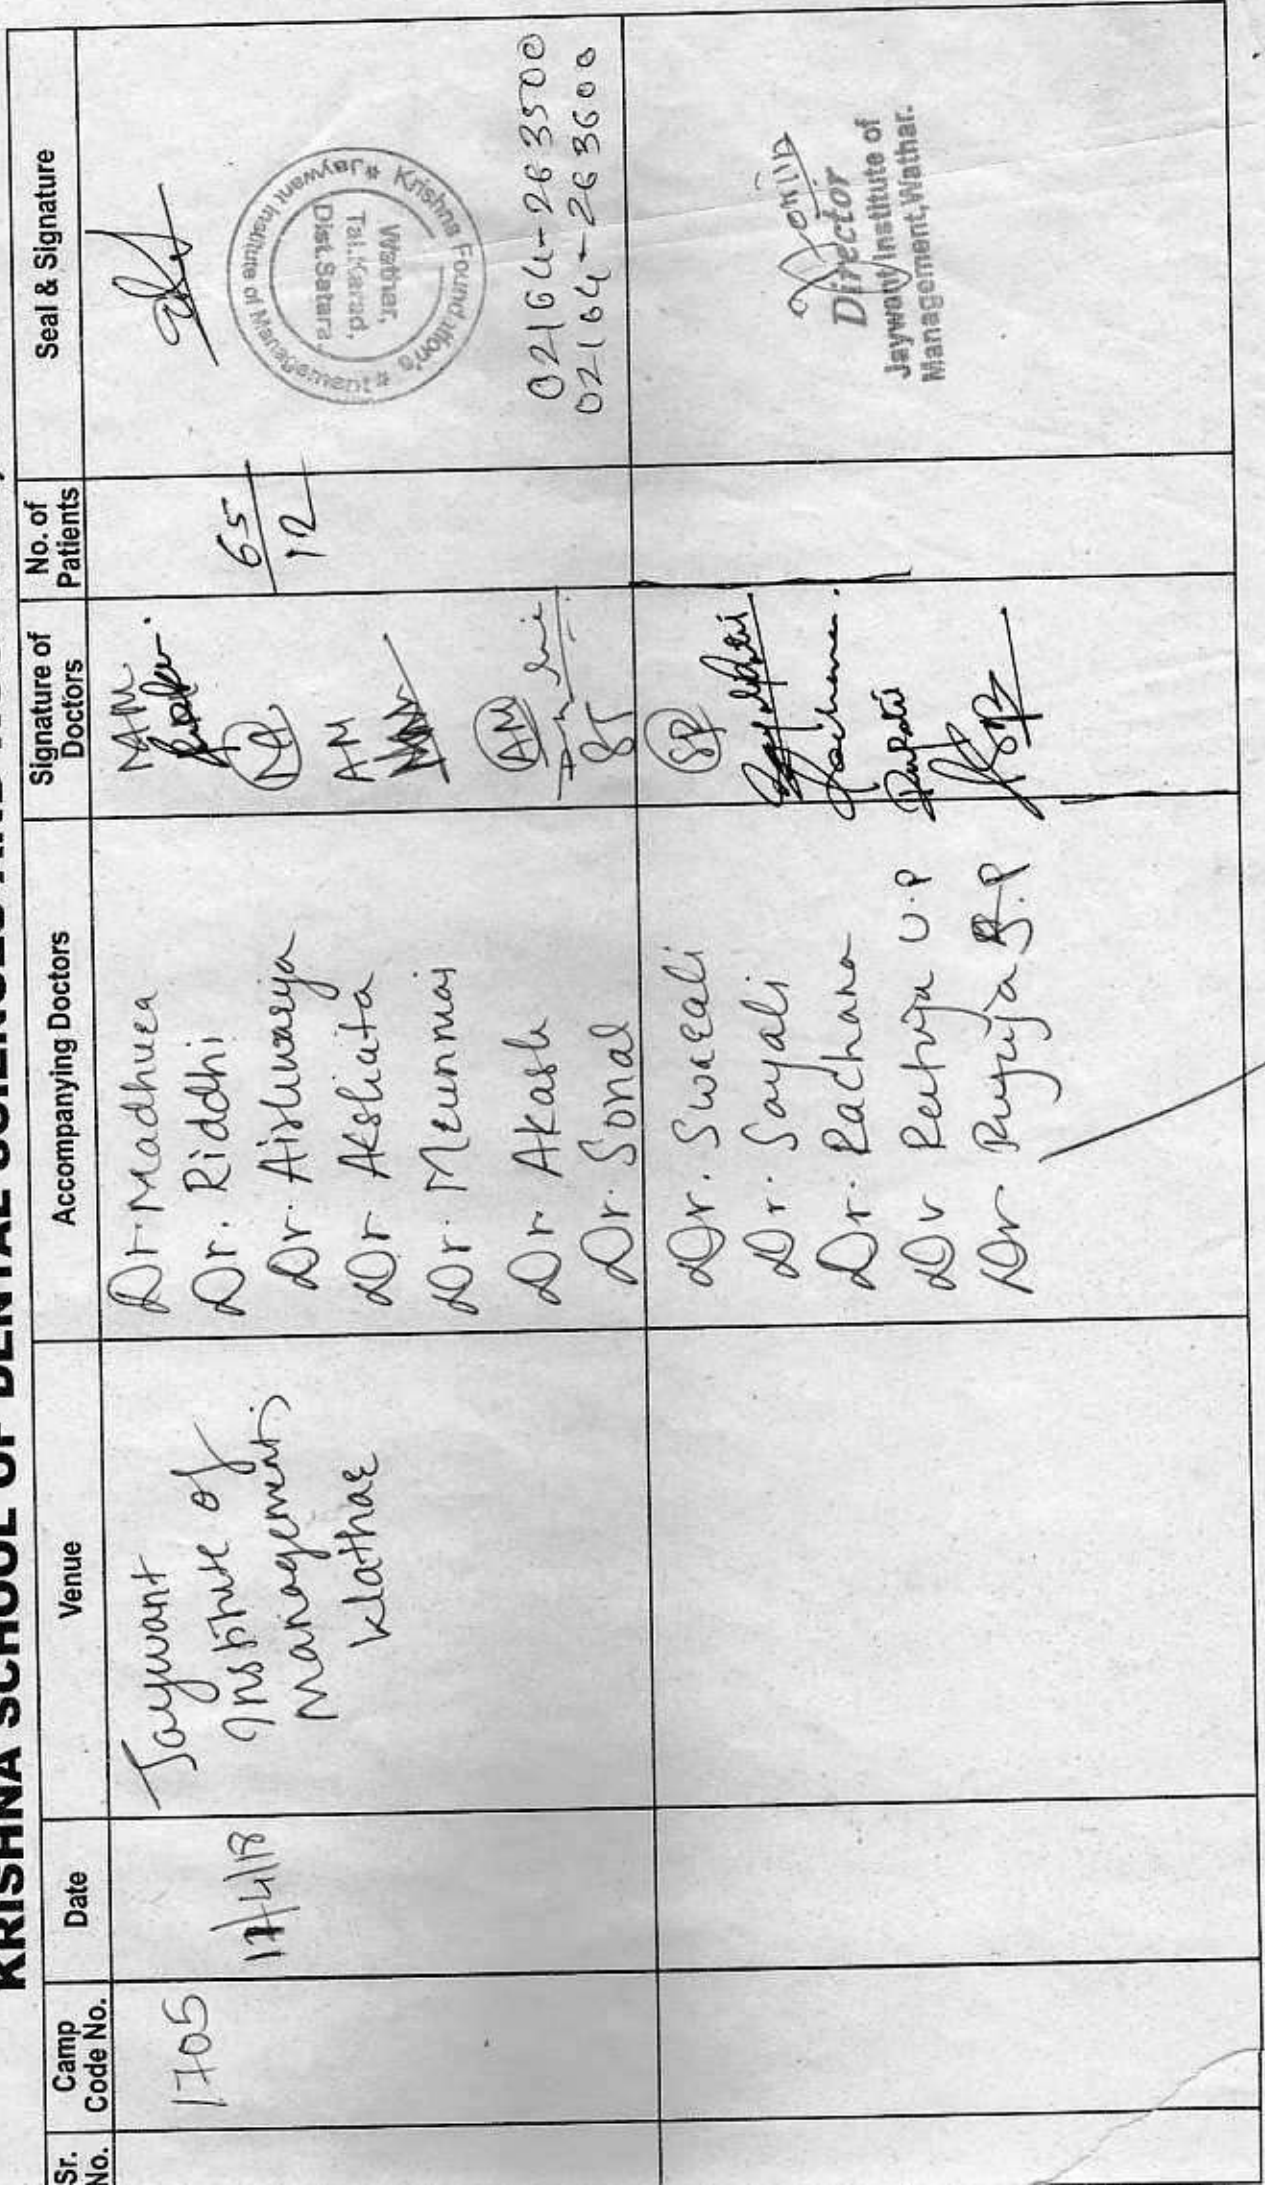 KRISHNA SCHOOL OF DENTAL SCIENCES
Sr. No.
Camp Code No.
Date
Venue
Accompanying Doctors
Signature of Doctors
No. of Patients
Seal & Signature
1705
Jaywant
Institute of
Management,
Dr. Madhura
Dr. Riddhi
Dr. Aishwarya
Dr. Akshata
Dr. Akash
Dr. Sonal
AM
AM
65
12
Krishna Foundation's
Jaywant Institute of Management
Wathar,
Tal. Karad,
Dist. Satara
02164-263500
02164-263600
Dr. Swarali
Dr. Sayali
Dr. Rachana
Dr
U.P
Dr
SP
Director
Jaywant Institute of
Management, Wathar.